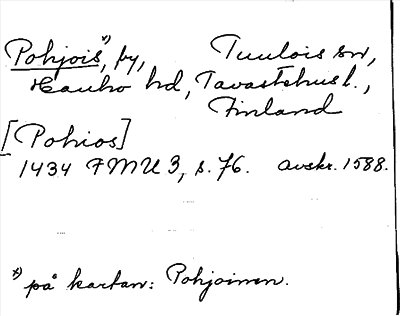 Pohjois*), by, Tuulois sn,
Hauho hd, Tavastehus l.,
Finland
[Pohios]
1434 FMU 3, s. 76. avskr. 1588.
*) på kartan: Pohjoinen.